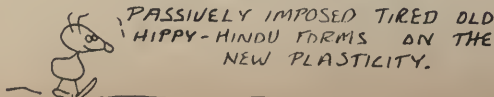 PASSIVELY IMPOSED TIRED OLD
HIPPY-HINDU FORMS ON THE
NEW PLASTICITY.